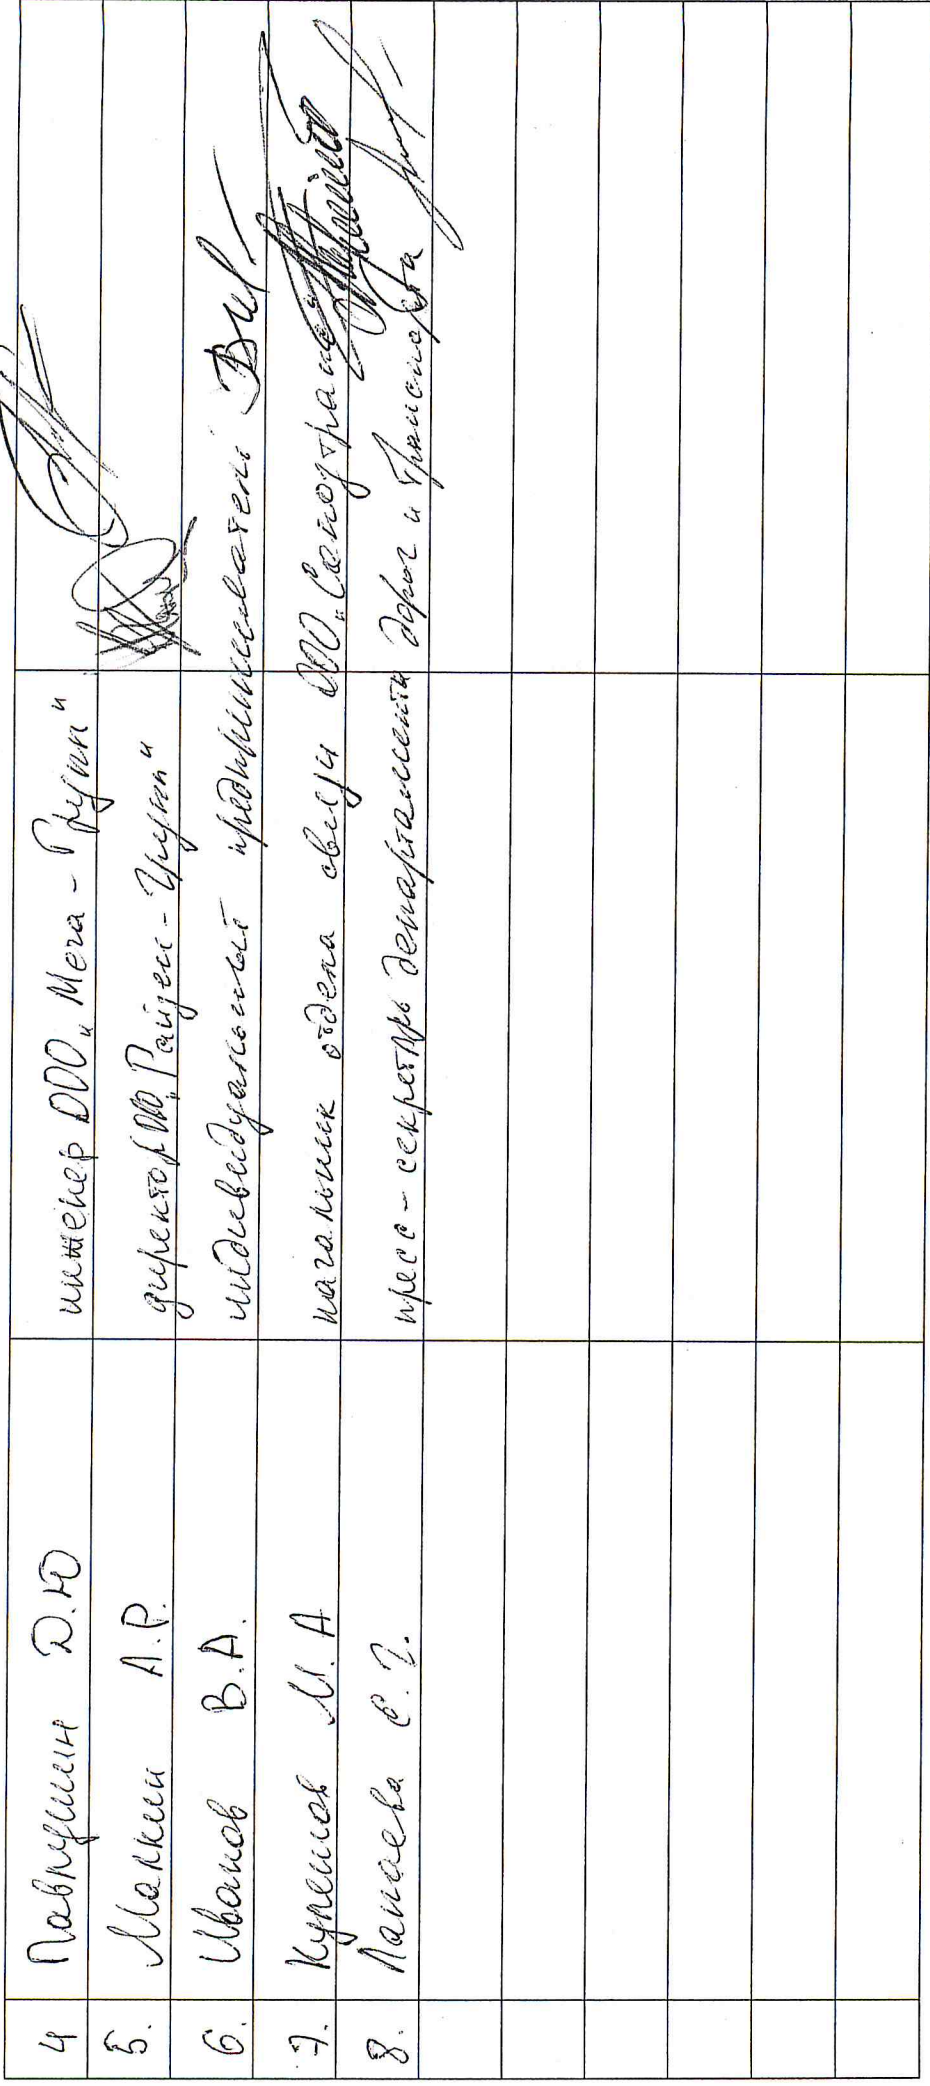 4 Павлушин Д.Ю инженер ООО „Мега - Групп"
5. Малкин А.Р. директор ООО „Райзен - Групп"
6. Иванов В.А. индивидуальный предприниматель
7. Кулешов М.А начальник отдела связи ООО „Саподтранс"
8. Лапаева Е.Г. пресс - секретарь департамента дорог и транспорта